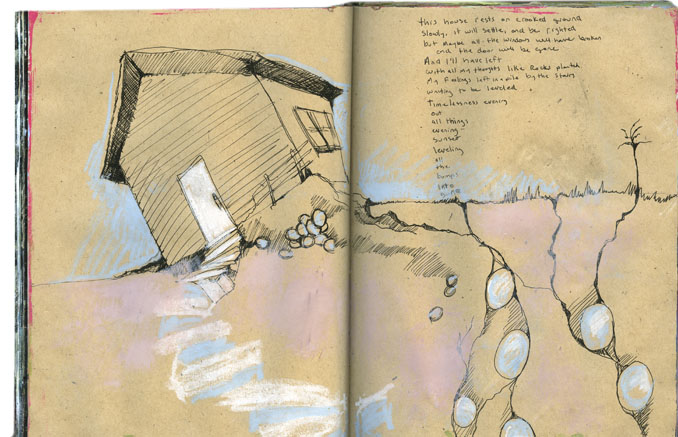 this house rests on crooked ground
slowly, it will settle, and be righted
but maybe all the windows will have broken
and the door will be gone
And I'll have left
with all my thoughts like Rocks planted
My feelings left in a pile by the stairs
waiting to be leveled
Timelessness evening
out
all things
evening
sunset
leveling
all
the
bumps
into